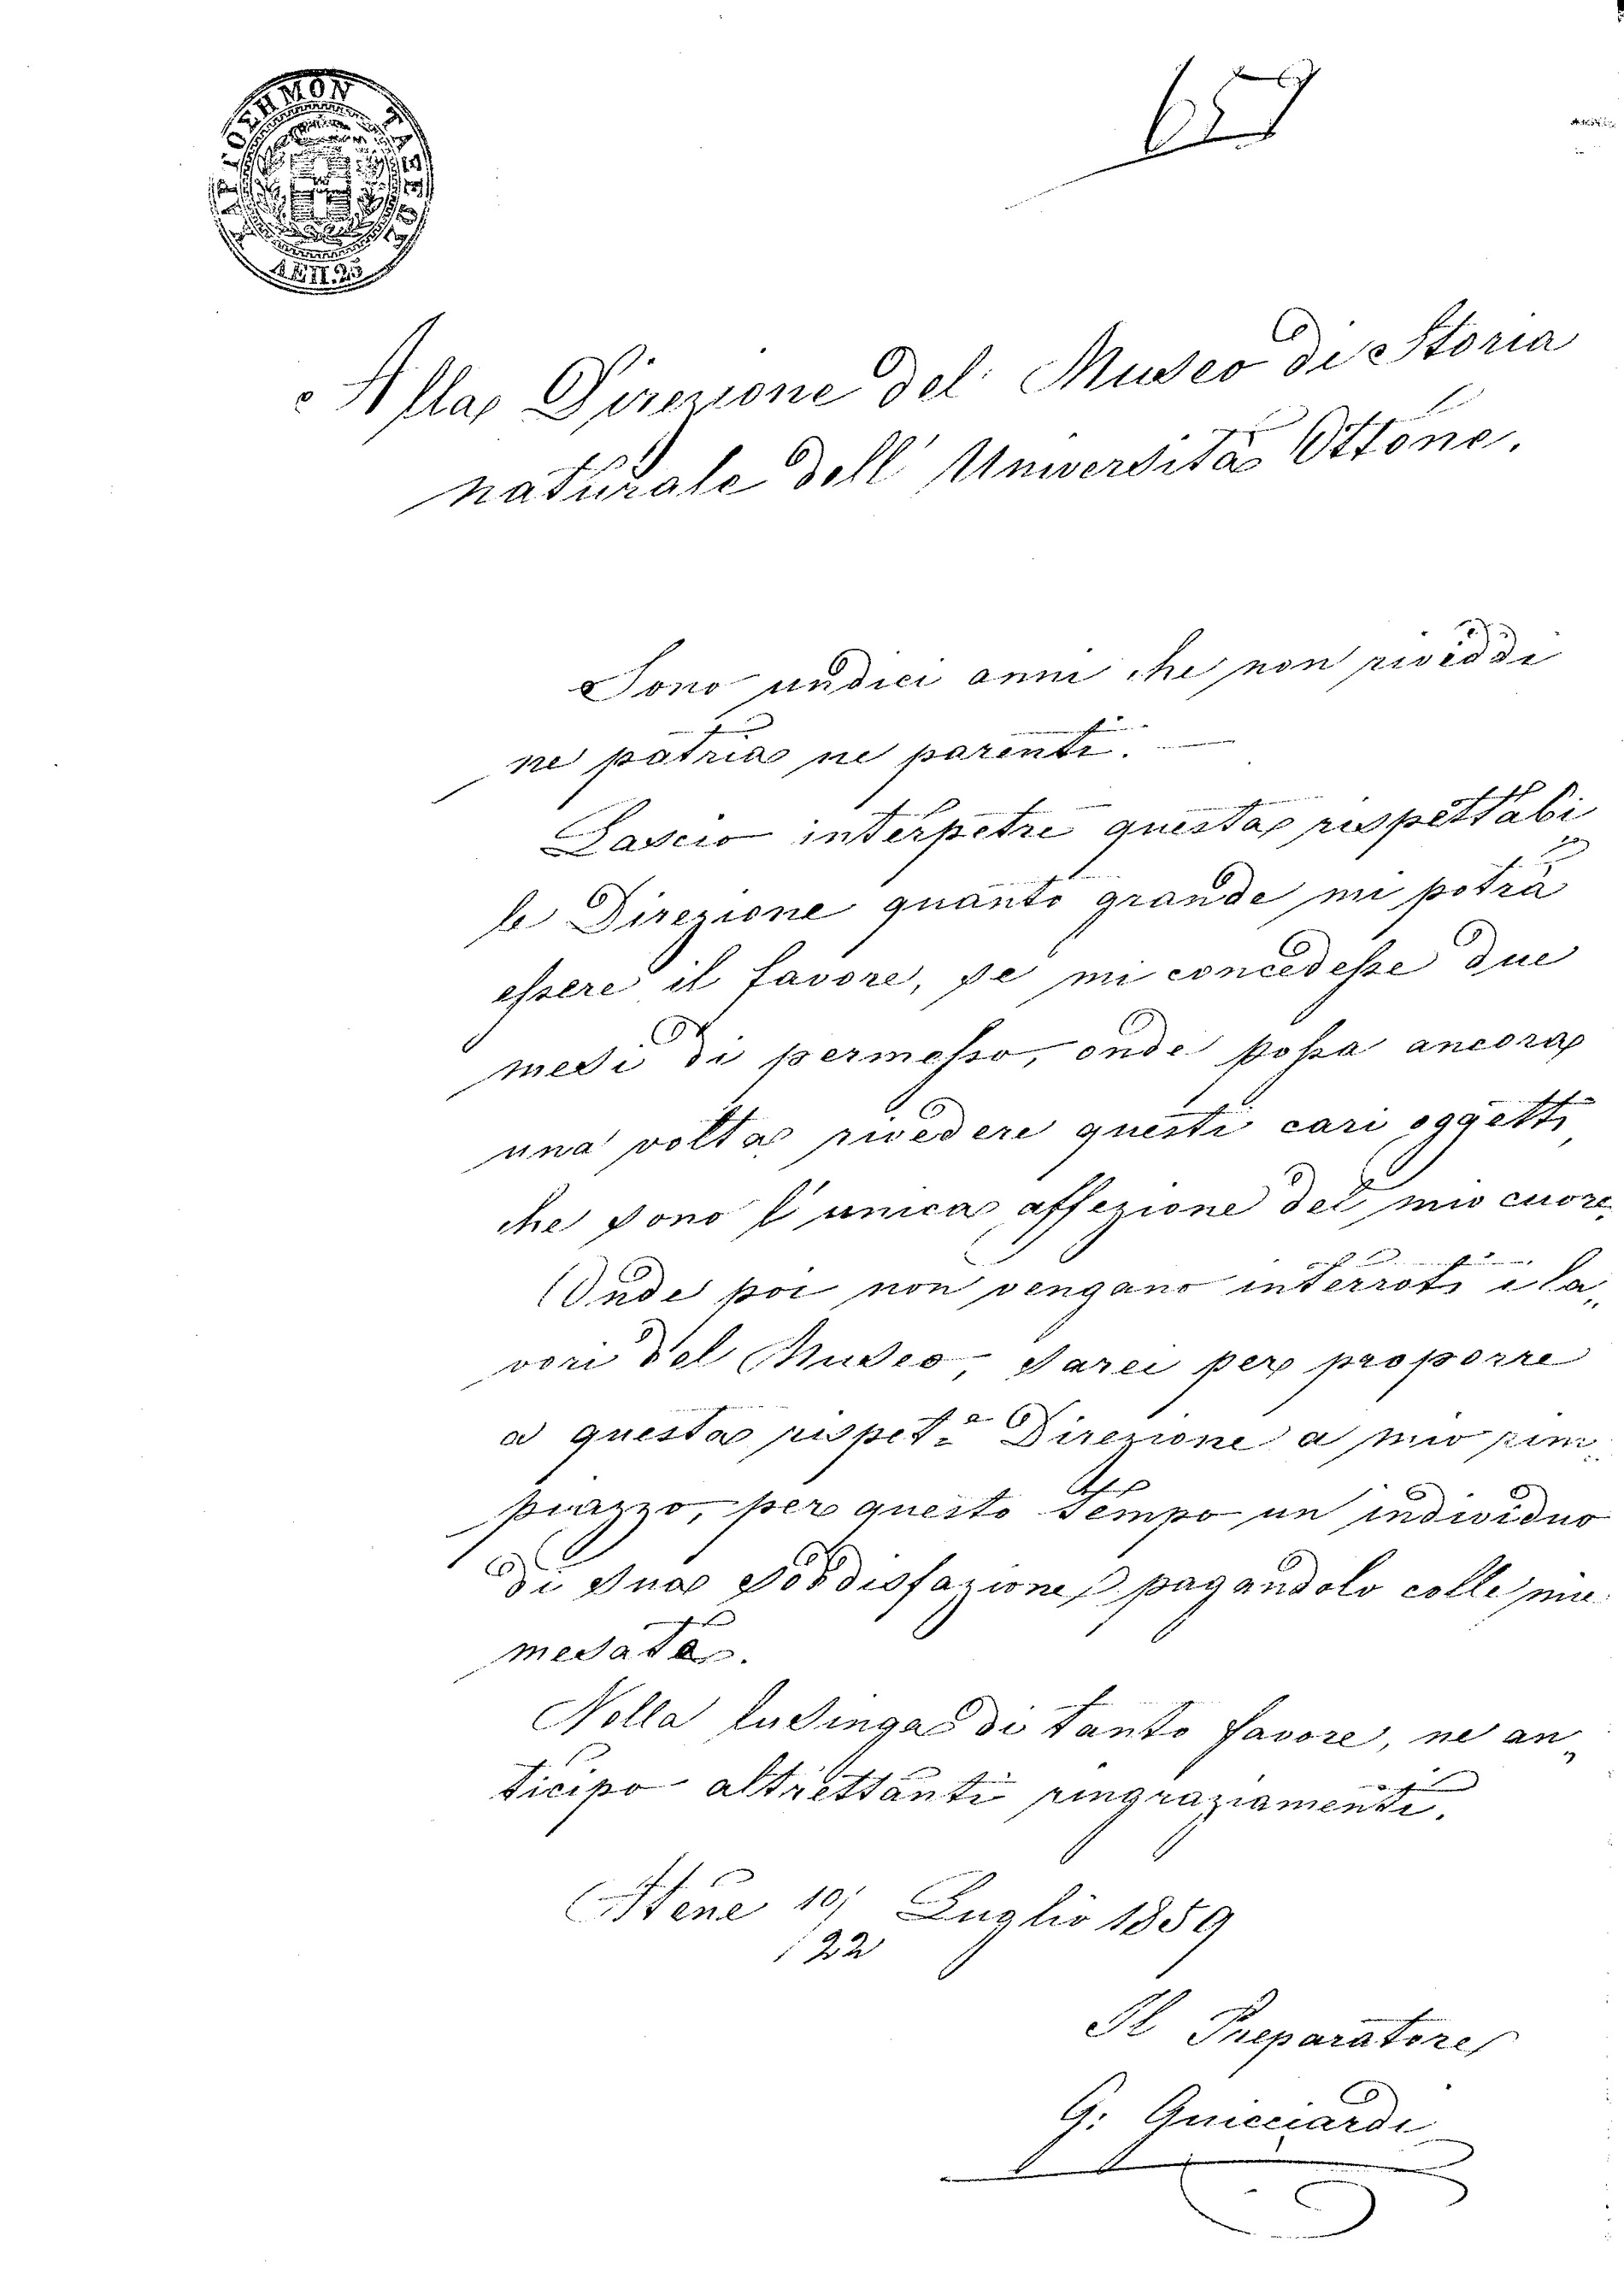 657
ΛΕΠ. 25
Alla Direzione del Museo di Storia
naturale dell' Università Ottone.
Sono undici anni che non rividdi
ne patria ne parenti. —
Lascio interpetre questa rispettabi
le Direzione quanto grande mi potrà
essere il favore, se mi concedesse due
mesi di permesso, onde possa ancora
una volta rivedere questi cari oggetti,
che sono l'unica affezione del mio cuore.
Onde poi non vengano interroti i la„
vori del Museo, sarei per proporre
a questa rispet.ª Direzione a mio rim„
piazzo, per questo tempo un individuo
di sua sodisfazione pagandolo colle mie
mesata.
Nella lusinga di tanto favore, ne an„
ticipo altrettanti ringraziamenti.
Atene 10/22 Luglio 1859
Il Preparatore
G: Guicciardi